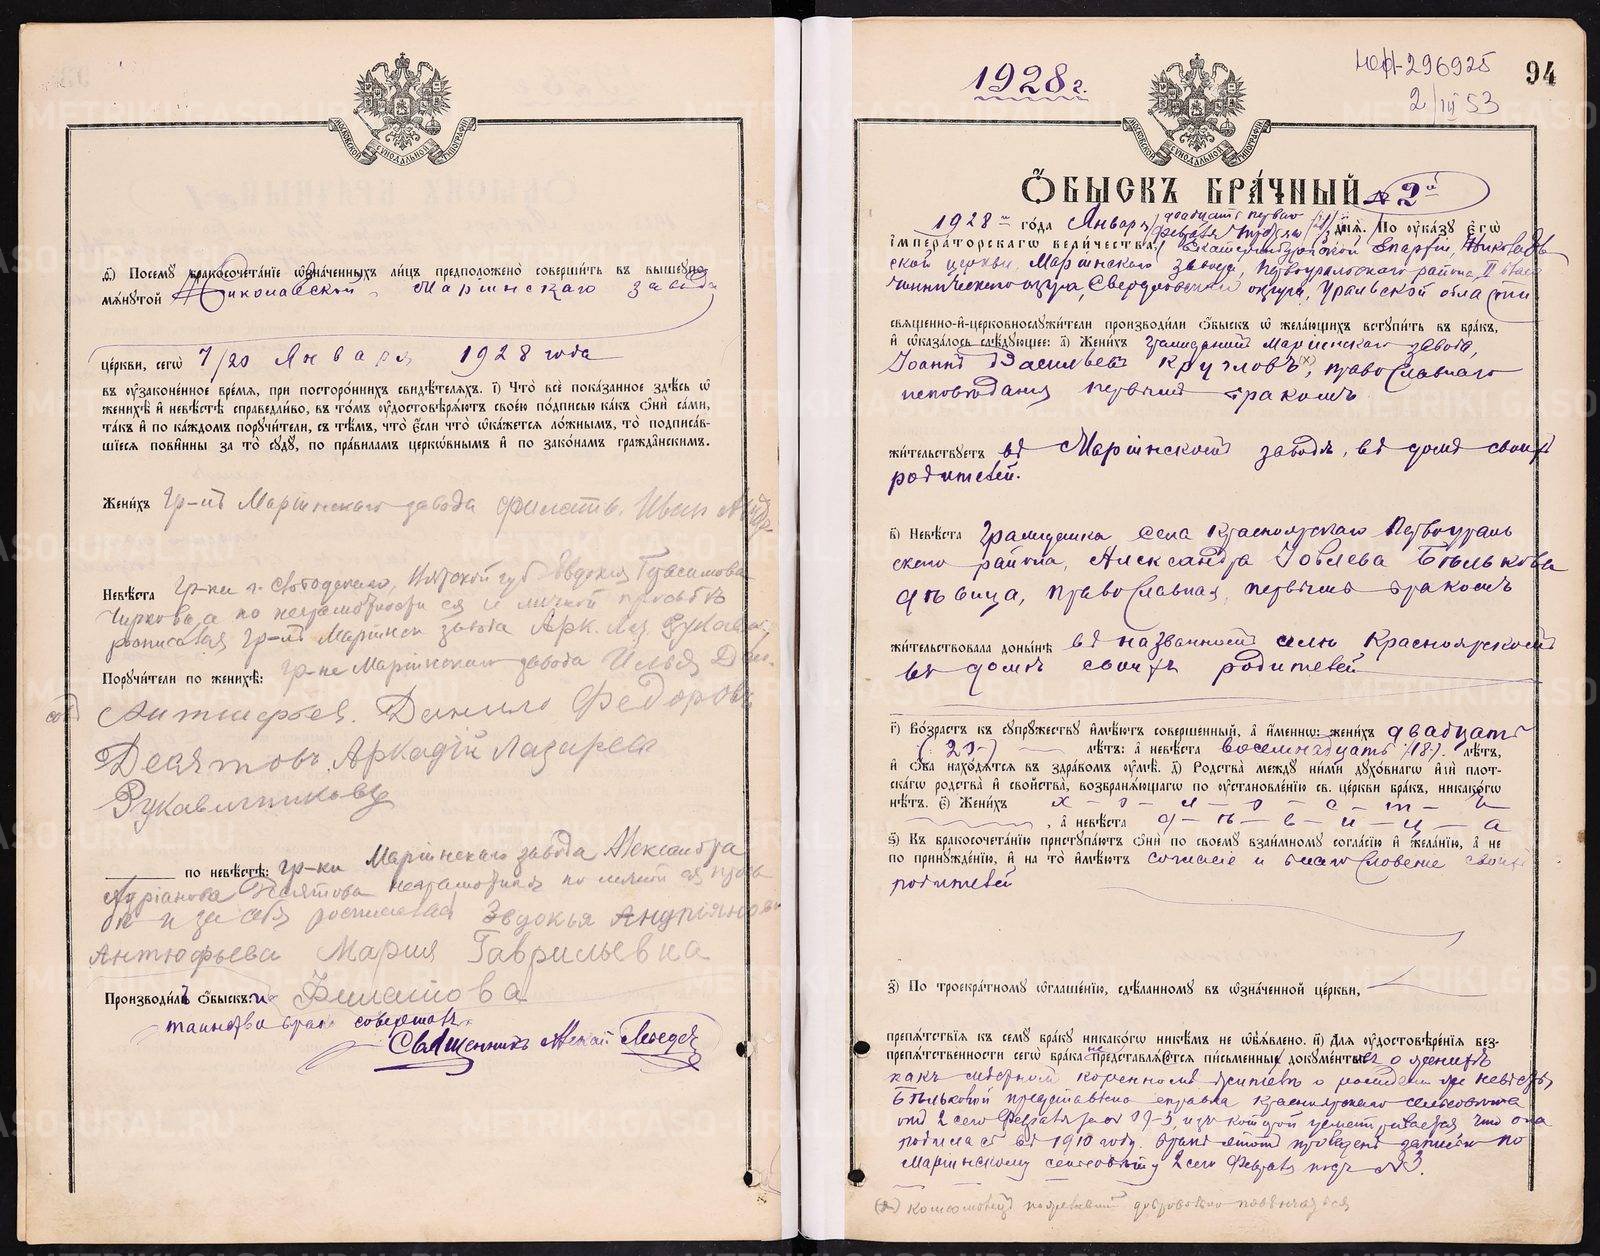 МОСКОВСКОЙ СѴНОДАЛЬНОЙ ТИПОГРАФІИ
д҃) Посемꙋ бракосочетанїе ѡзначенныхъ лицъ предположено совершить въ вышеупо-
мянутой Николаевской Маріинскаго завода
церкви, сегѡ 7/20 Января 1928 года
въ оузаконенное время, при посторонныхъ свидѣтеляхъ. і҃) Что всё показанное здѣсь ѡ
женихѣ и невѣстѣ справедливо, въ томъ оудостовѣряютъ своею подписью какъ ѡни сами,
такъ и по каждомъ поручители, съ тѣмъ, что если что ѡкажется ложнымъ, то подписав-
шіеся повинны за то суду, по правиламъ церковнымъ и по законамъ гражданскимъ.
Женихъ гр-нъ Маріинскаго завода Филатовъ Иван
Невѣста гр-ка г. Вятской губ Евдокия Герасимова
Чиркова, а по неграмотности ея и личной просьбѣ
росписался гр-нъ Маріинск завода Арк. Лаз. Рукавиш
Поручители по женихѣ: гр-не Маріинскаго завода Илья
Антюфьев. Данило Федоровъ
Десятовъ, Аркадій Лазарева
Рукавишниковъ
по невѣстѣ: гр-ки Маріинскаго завода Александра
Десятова неграмотная по личной ея прось
бѣ и за себя росписалась Эвдокья Андрияновна
Антюфьева Мария Гаврильевна
Филатова
Производилъ ѡбыскъ и
таинство брака совершалъ
Священникъ Алексій
1928 г.
296925
2/III 53
94
МОСКОВСКОЙ СѴНОДАЛЬНОЙ ТИПОГРАФІИ
ѠБЫСКЪ БРАЧНЫЙ № 2й
1928 года Января двадцать перваго Февраля третья дня. По оуказу егѡ
императорскагѡ величества, Екатеринбургской Епархіи, Николаев
ской церкви, Маріинскаго завода, Первоуральскаго района, II благо
чинническаго округа, Свердловской округи, Уральской области
священно-и-церковнослужители производили ѡбыскъ ѡ желающихъ вступить въ бракъ,
и ѡказалось слѣдующее: а҃) Женихъ гражданинъ Маріинскаго завода,
Іоаннъ Васильевъ Кругловъ(х), православнаго
исповѣданія первымъ бракомъ
жительствуетъ въ Маріинскомъ заводѣ, въ домѣ своихъ
родителей.
в҃) Невѣста Гражданка села Красноярскаго Первоураль
скаго района, Александра Іовлева Бѣлькова
дѣвица, православная, первымъ бракомъ
жительствовала донынѣ въ названномъ селѣ Красноярскомъ
въ домѣ своихъ родителей
г҃) Возрастъ къ супружеству имѣютъ совершенный, а именно: женихъ двадцать
(23) лѣтъ: а невѣста восемнадцать (18) лѣтъ,
и ѻба находятся въ здравомъ оумѣ. д҃) Родства между ними духовнагѡ или плот-
скагѡ родства и свойства, возбраняющагѡ по оустановленію св. церкви бракъ, никакогѡ
нѣтъ. е҃) Женихъ х-о-л-о-с-т-ъ
, а невѣста д-ѣ-в-и-ц-а
ѕ҃) Къ бракосочетанію приступаютъ ѡни по своему взаимному согласію и желанію, а не
по принужденію, и на то имѣютъ согласіе и благословеніе своихъ
родителей
з҃) По троекратному ѡглашенію, сдѣланному въ ѡзначенной церкви,
препятствія къ сему браку никакогѡ никѣмъ не ѡбъявлено. и҃) Для оудостовѣренія без-
препятственности сегѡ брака не представляется письменныхъ документовъ о женихѣ
какъ мѣстномъ коренномъ жителѣ, о рожденіи же невѣсты
Бѣльковой представлена справка Красноярскаго сельсовѣта
отъ 2 сего Февраля за № 19-3, изъ которой усматривается что она
родилась въ 1910 году. Бракъ этотъ проведенъ записью по
Маріинскому сельсовѣту 2 сего Февраля подъ №3.
(х) Комсомолецъ пожелавшій добровольно повѣнчаться